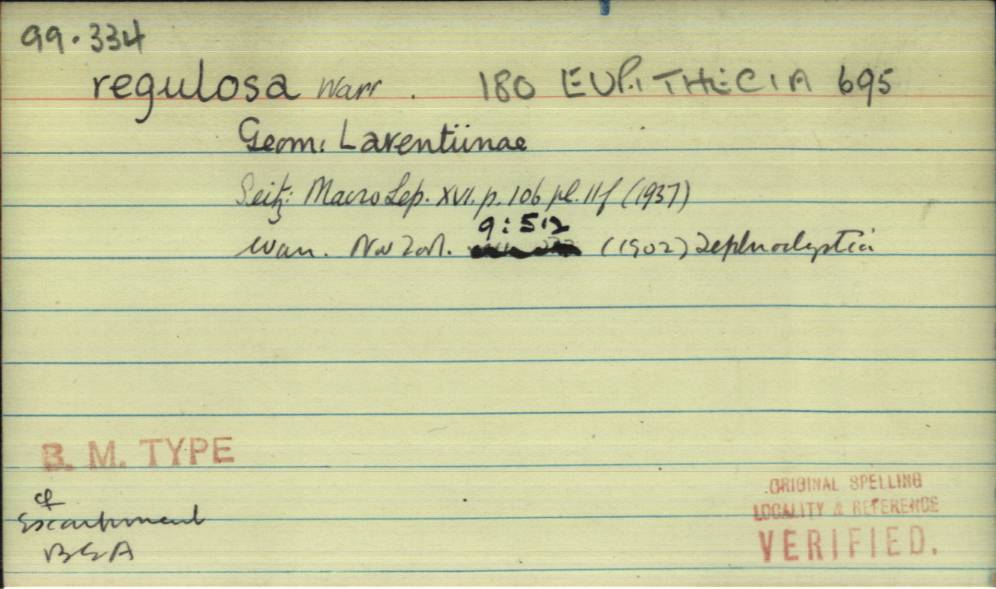 99.334
regulosa Warr. 180 EUPITHECIA 695
Geom. Larentiinae
Seitz: Macro Lep. XVI. p. 106 pl. 11f (1937)
9:512
Warr. Nov Zool. (1902) Tephroclystia
B. M. TYPE
♂
Escarpment
BEA
ORIGINAL SPELLING
LOCALITY & REFERENCE
VERIFIED.